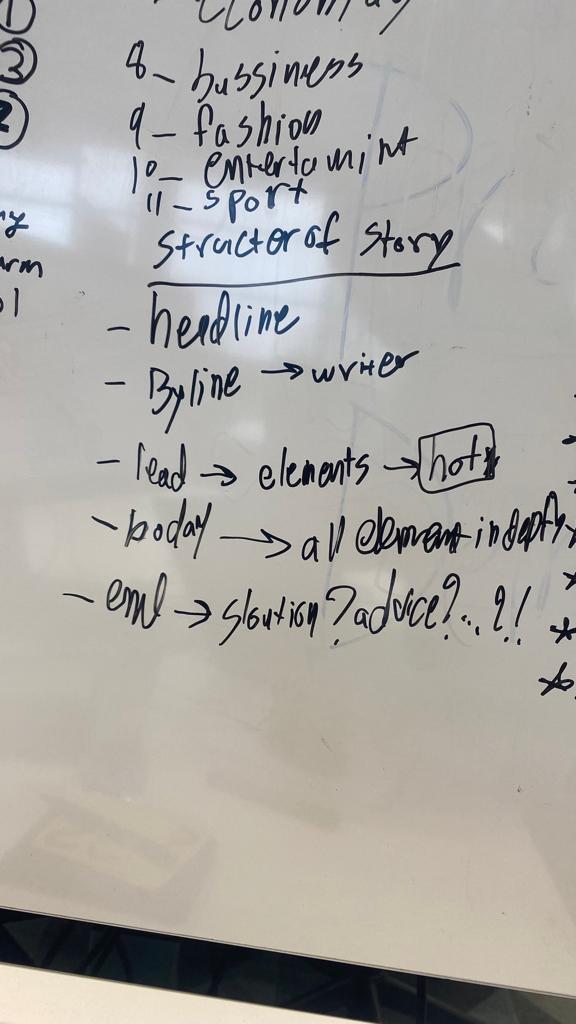 ①
③
②
Economy
8- bussiness
9- fashion
10- entertamint
11- sport
structor of story
- headline
- Byline → writer
- lead → elements → hot
- boday → all element in depth
- end → sloution? advice?...?!